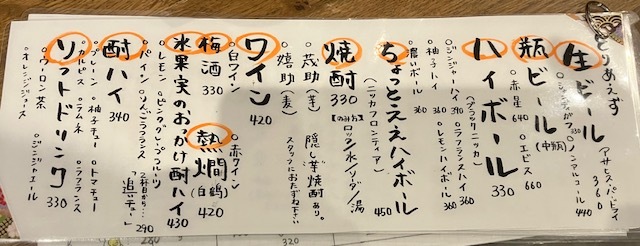 とりあえず
生ビール
アサヒスーパードライ
360
○シャンディガフ 330
○ノンアルコール
440
瓶ビール(中瓶)
○赤星 640
○エビス 660
ハイボール 330
(ブラックニッカ)
○ジンジャーハイ 390
○ラフランスハイ 360
○柚子ハイ 360
○レモンハイボール 360
○濃いボール 360
ちょっとええハイボール 450
(ニッカフロンティア)
焼酎 330
【のみ方】ロック/水/ソーダ/湯
○茂助(芋)
隠し芋焼酎あり。
○嬉助(麦)
スタッフにおたずね下さい
ワイン 420
○白ワイン
○赤ワイン
梅酒 330
熱燗(白鶴) 420
氷果実のおかけ酎ハイ 430
○レモン
○ピンクグレープフルーツ
○パイン
○リンゴ
○ラフランス
2杯目から…
「追いチュー」 290
酎ハイ 340
○プレーン
○柚子チュー
○トマチュー
○カルピス
○ラムネ
○ラフランス
ソフトドリンク 330
○ウーロン茶
○オレンジジュース
○ジンジャエール
320